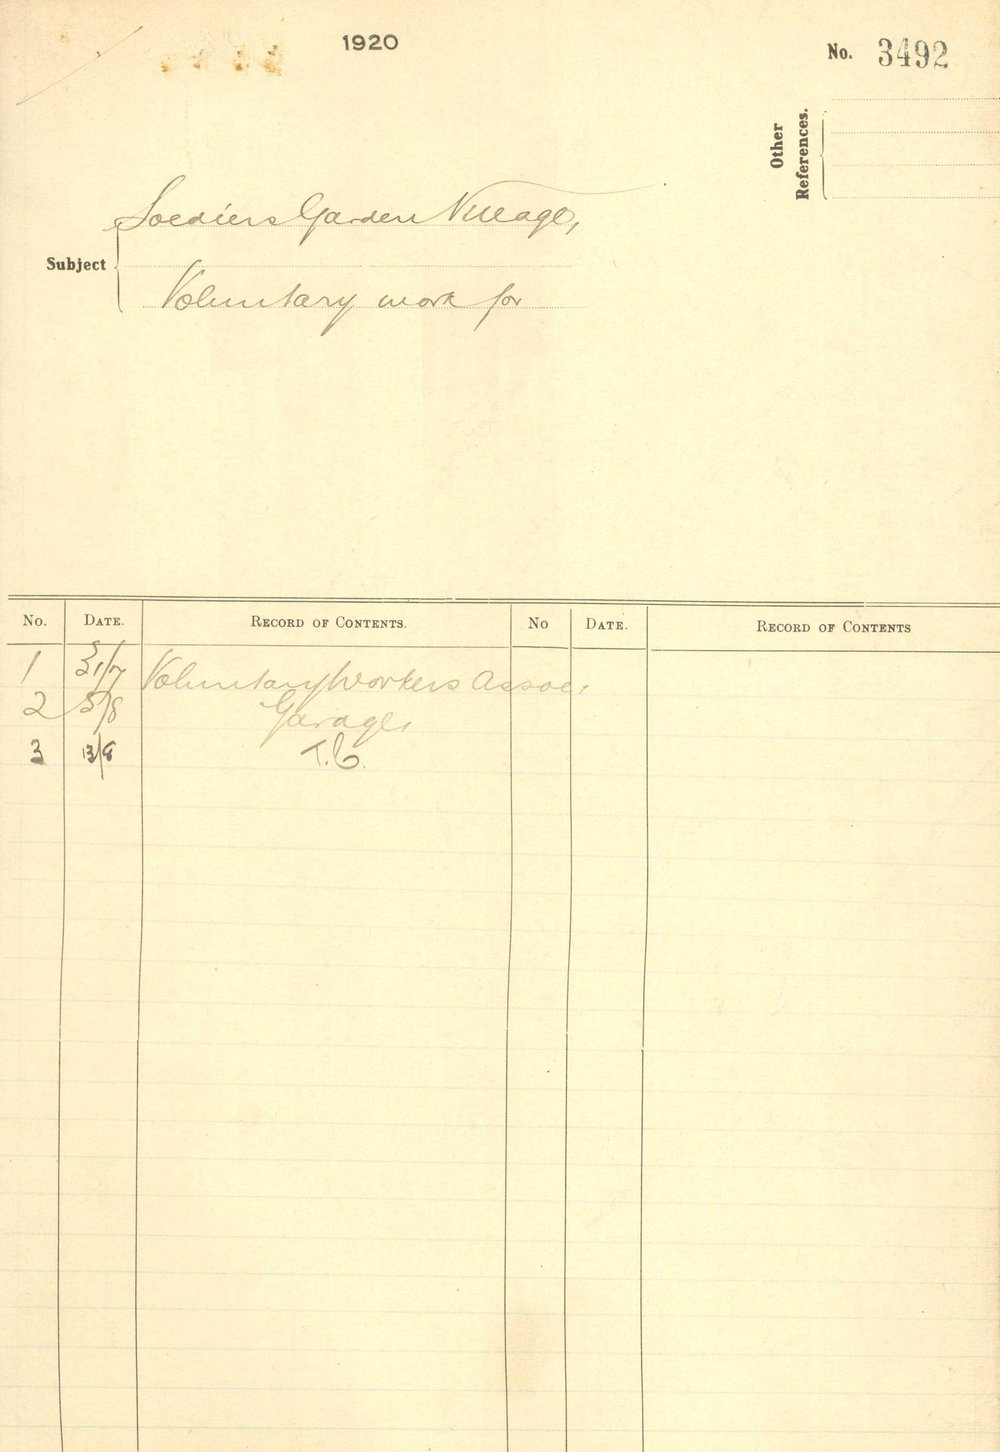 1920
No. 3492
Other References.
Soldiers Garden Village,
Subject
Voluntary work for
No. DATE. RECORD OF CONTENTS. No DATE. RECORD OF CONTENTS
1 31/7 Voluntary Workers Assoc.
2 5/8 Garage,
3 13/8 T.C.